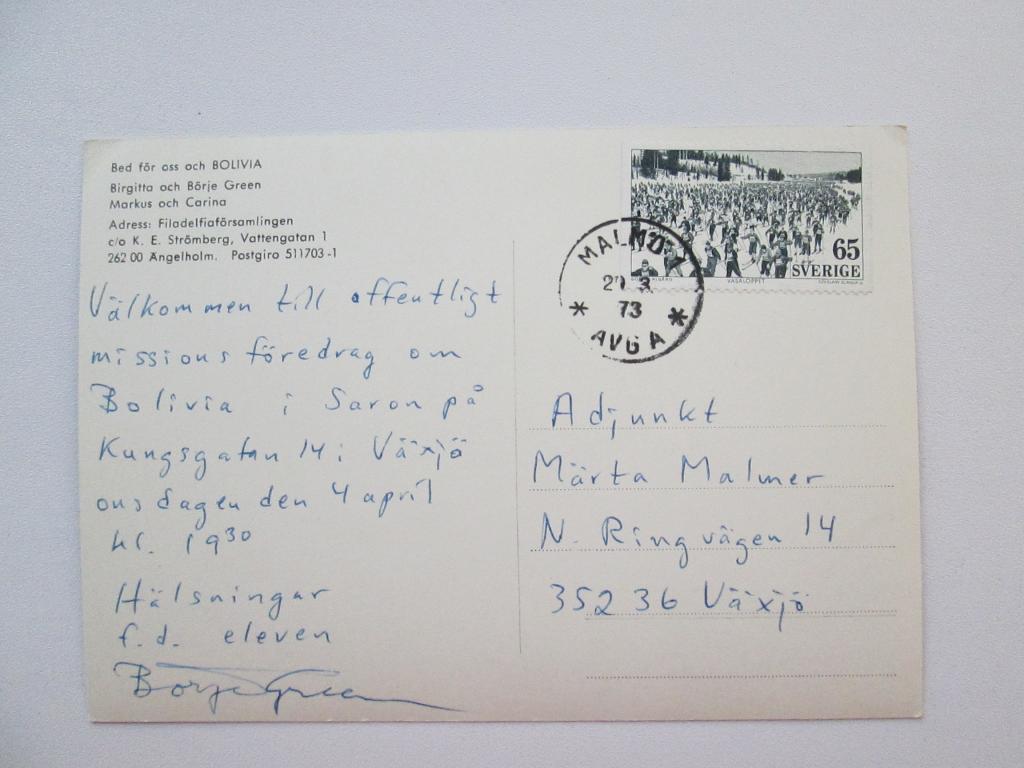 Bed för oss och BOLIVIA
Birgitta och Börje Green
Markus och Carina
Adress: Filadelfiaförsamlingen
c/o K. E. Strömberg, Vattengatan 1
262 00 Ängelholm. Postgiro 511703-1
Välkommen till offentligt
missionsföredrag om
Bolivia i Saron på
Kungsgatan 14 i Växjö
onsdagen den 4 april
kl. 19³⁰
Hälsningar
f.d. eleven
Börje Green
65
SVERIGE
VASALOPPET
MALMÖ 1
3
73
* AVG A *
Adjunkt
Märta Malmer
N. Ringvägen 14
352 36 Växjö